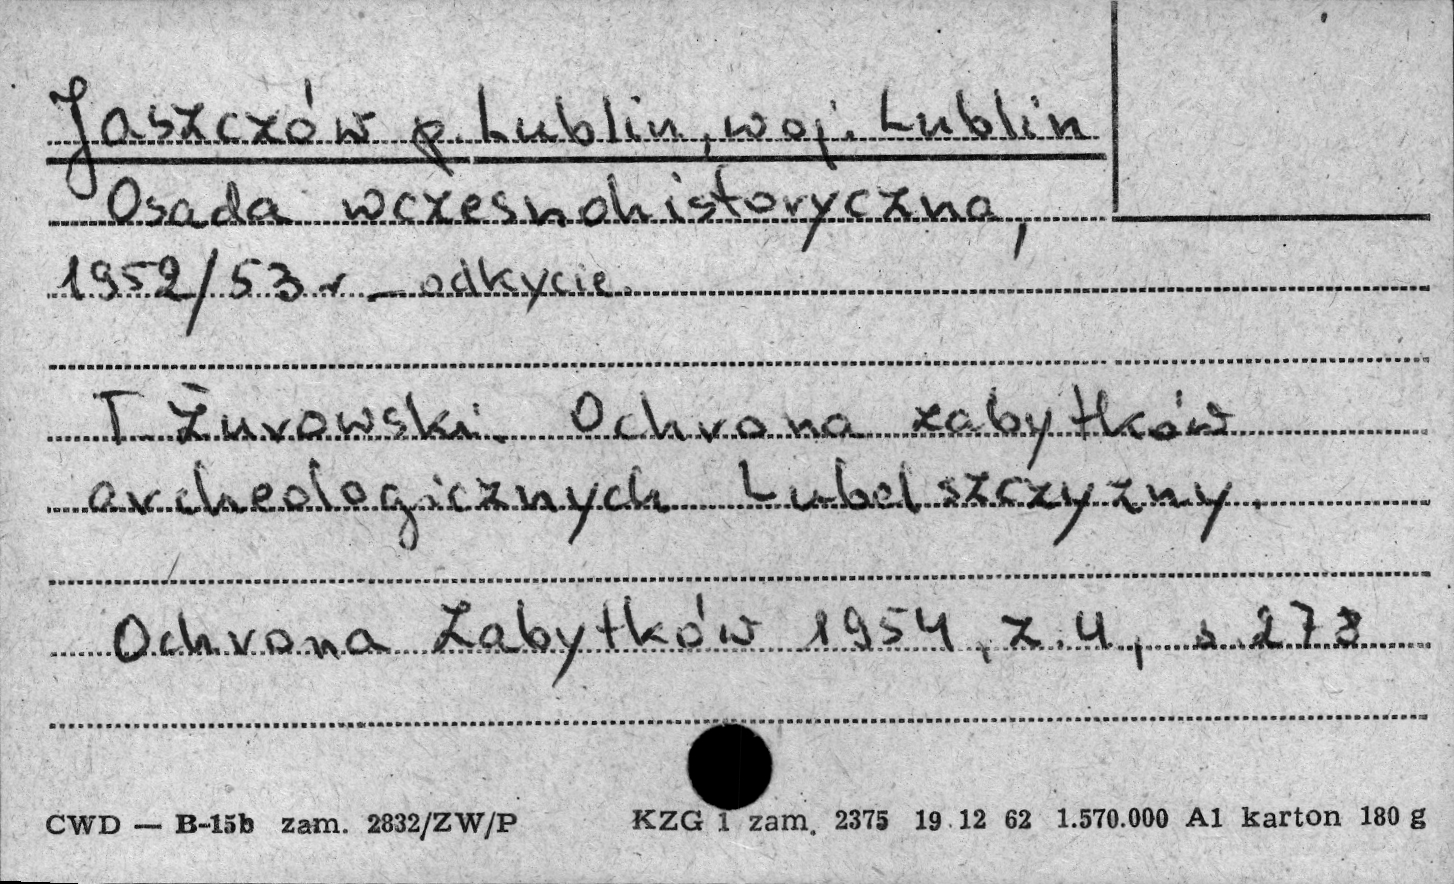 Jaszczów p. Lublin, woj. Lublin
Osada wczesnohistoryczna,
1952/53 r – odkycie.
T. Żurowski. Ochrona zabytków
archeologicznych Lubelszczyzny.
Ochrona Zabytków 1954, z. 4, s. 273
CWD — B-15b zam. 2832/ZW/P KZG 1 zam. 2375 19.12 62 1.570.000 A1 karton 180 g